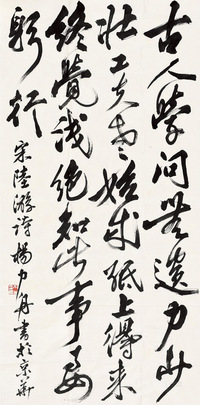 古人學問無遺力少
壯工夫老始成紙上得来
終覺淺絕知此事要
躬行
宋陸游詩楊力舟書於京華